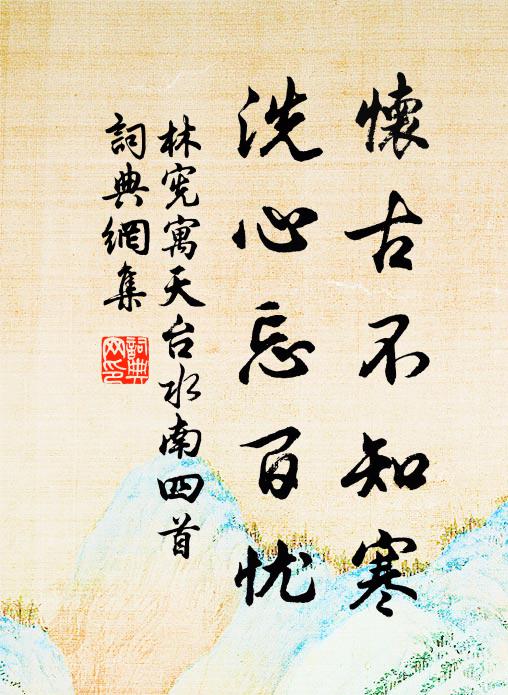 懷古不知寒
洗心忘百忧
林宪寓天台水南四首
詞典網集
詞典網印